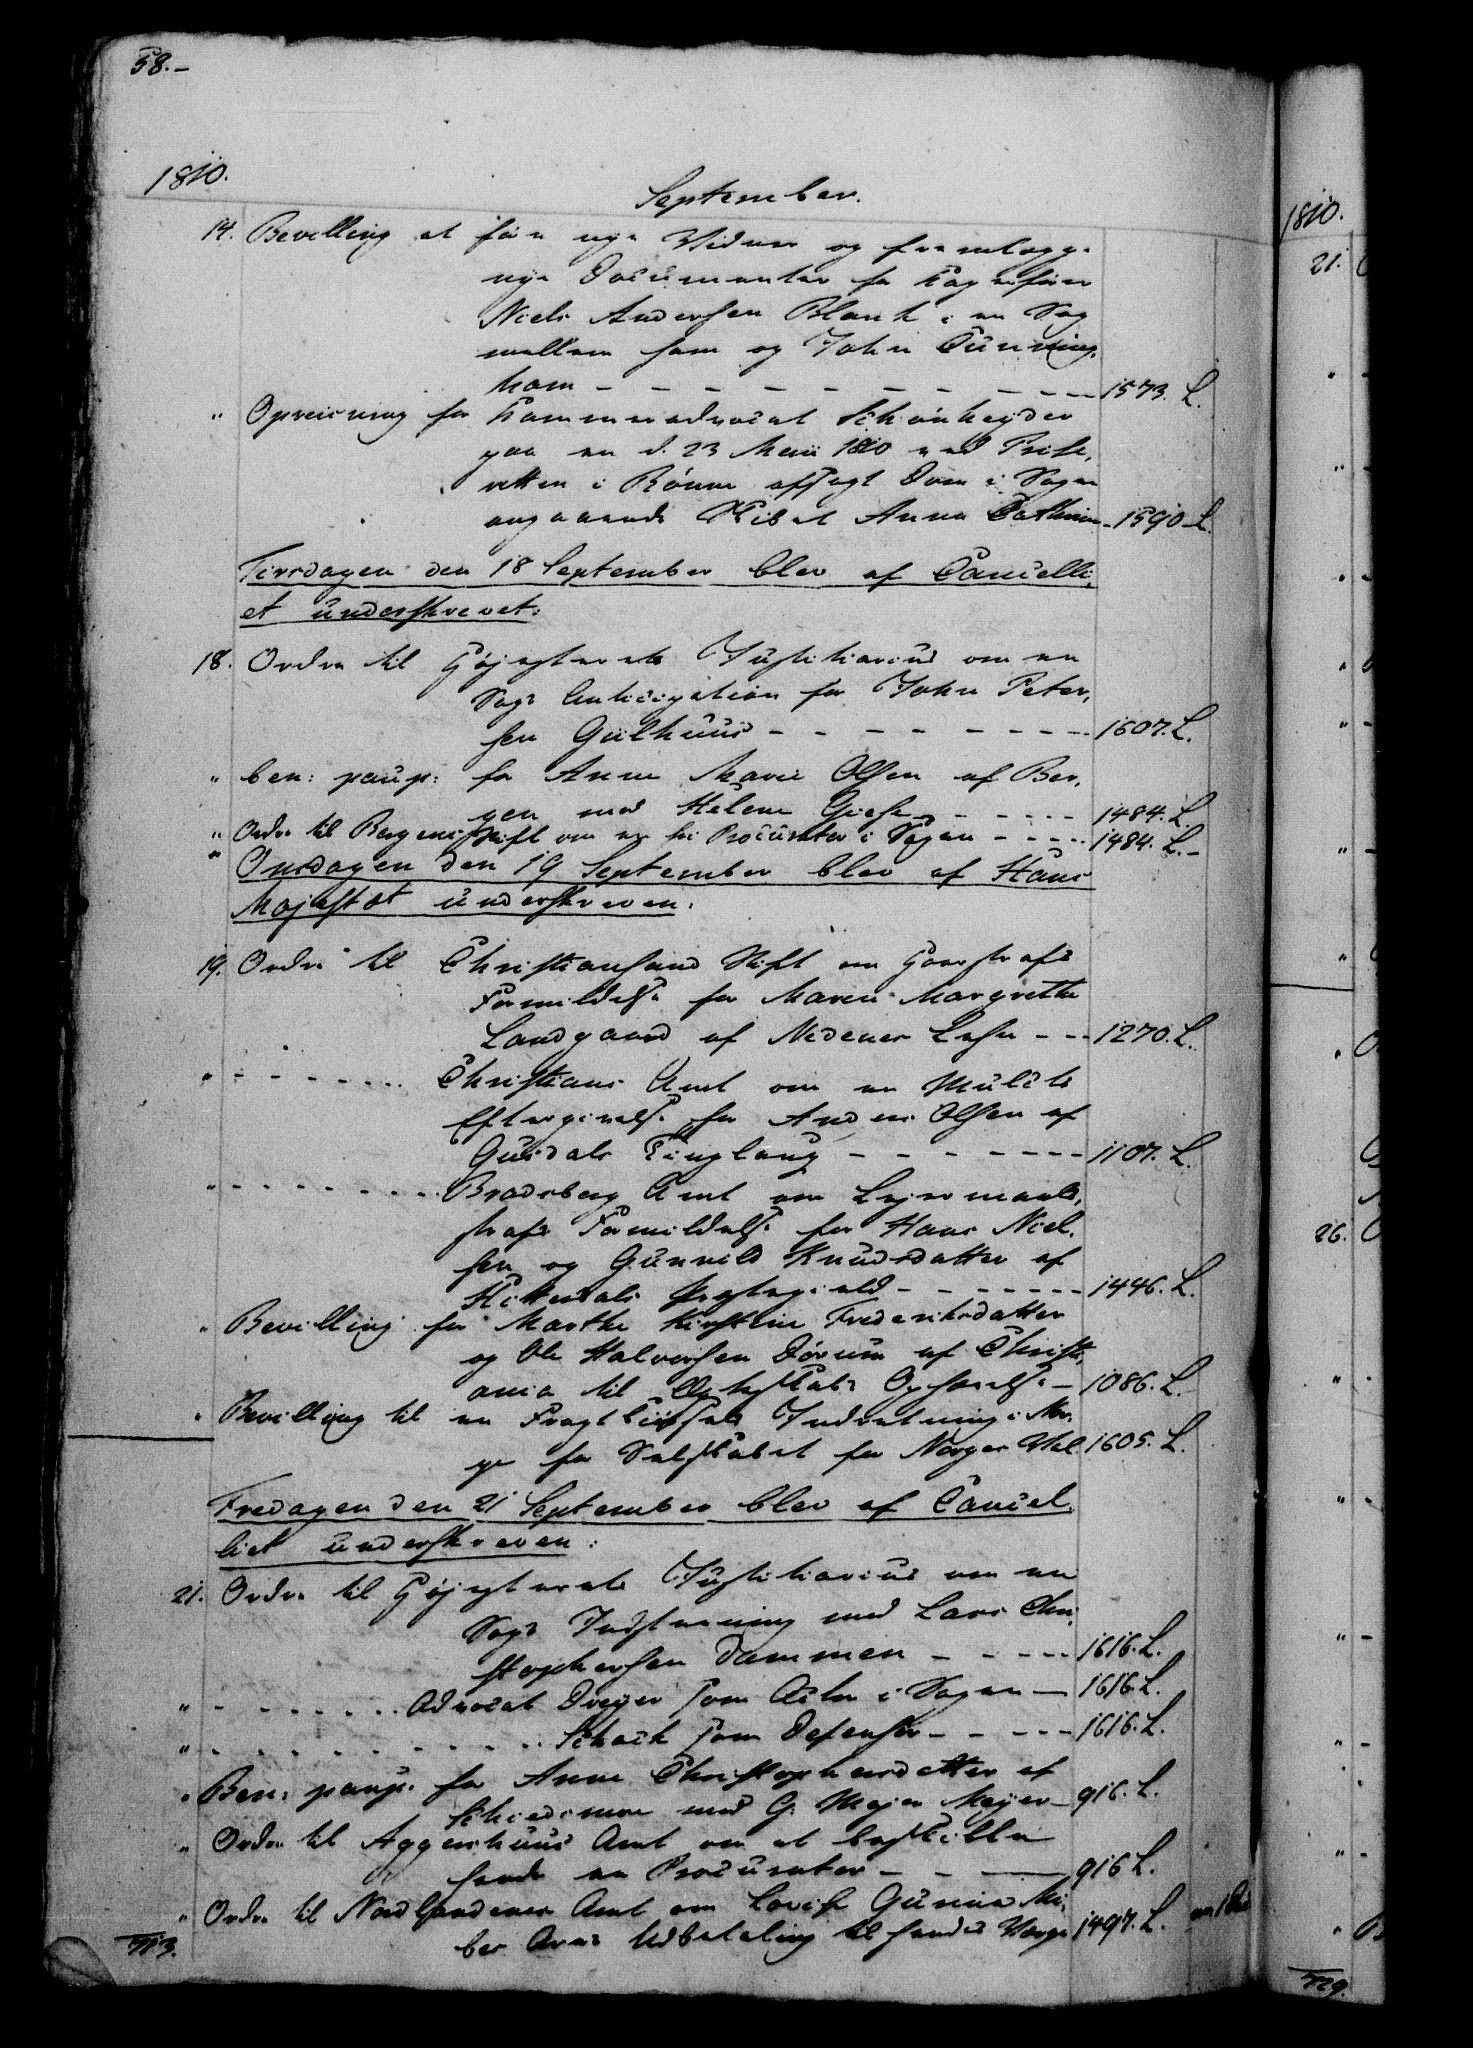 58.-
1810.
September.
14. Bevilling at føre nye Vidner og fremlægge
nye Documenter for Sagfører
Niels Andersen Blank i en Sag
mellem ham og John Cunning,
ham - - - - - - - - - - 1573. L.
" Opreisning for Kammeradvocat Schönheyder
paa en d. 23 Maii 1810 ved Prise,
retten i Rönne afsagt Dom i Sagen
angaaende Skibet Anna Cathrine - 1590 L.
Tirsdagen den 18 September blev af Cancelli,
et underskrevet:
18. Ordre til Höjesterets Justitiarius om en
Sags Anticipation for John Peter,
sen Gülhuus - - - - - - - - 1607. L.
" ben: paup: for Anne Marie Olsen af Ber,
gen mod Helene Giese - - - - - 1484. L.
" Ordre til Bergens Stift om en Procurator i Sagen - - - - 1484. L.-
" Onsdagen den 19 September blev af Hans
Majestæt underskreven.
19. Ordre til Christiansand Stift om
Formildelse for Maren Margrethe
Landgaard af Nedenes Lehn - - - 1270. L.
" - - - - - - - Christians Amt om en Mulcts
Eftergivelse for Anders Olsen af
Gusdals Tinglaug - - - - - - - 1107. L.
" - - - - - - - - Bradsberg Amt om Leiermaals,
strafs Formildelse for Hans Niel,
sen og Gunnild Knudsdatter af
Hitterdals Præstegield - - - - - - - 1446. L.
" Bevilling for Marthe Kirstine Frederiksdatter
og Ole Halvorsen Dørum af Christi,
ania til Ægteskabs Ophævelse - 1086. L.
" Bevilling til en Indretning i Nor,
ge for Selskabet for Norges Vel 1605. L.
Fredagen den 21 September blev af Cancel,
liet underskreven:
21. Ordre til Höjesterets Justitiarius om en
Sags Indstævning med Lars Chri,
stophersen Dammen - - - - - 1616. L.
" - - - - - - - Advocat Dreyer som Actor i Sagen - 1616. L.
" - - - - - - - - - - - Schack som Defensor - - - - - 1616. L.
" Ben: paup: for Anne Christophersdatter af
mod G. Majer Meyer - 916. L.
" Ordre til Aggershuus Amt om at beskikke
hende en Procurator - - - 916 L.
" Ordre til Nordlandenes Amt om Lovise
Arvs Udbetaling til hendes Værge 1497. L.
713.
1810.
21.
26.
729.